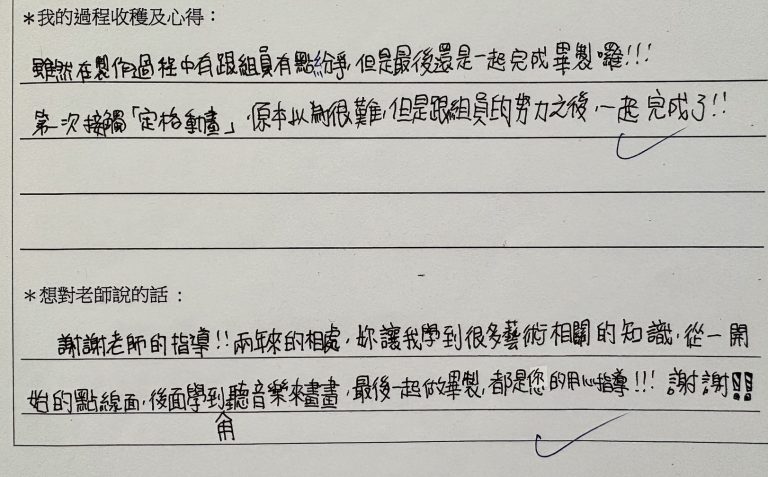 ＊我的過程收穫及心得：
雖然在製作過程中有跟組員有點紛爭，但是最後還是一起完成畢製囉!!!
第一次接觸「定格動畫」，原本以為很難，但是跟組員的努力之後，一起完成了!!
＊想對老師說的話：
謝謝老師的指導!!兩年來的相處，妳讓我學到很多藝術相關的知識，從一開
始的點線面，後面學到用聽音樂來畫畫，最後一起做畢製，都是您的用心指導!!!謝謝!!